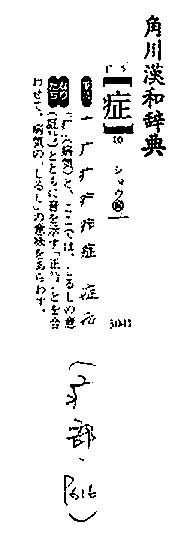 角川漢和辞典
【症】
10
ショウ
一 广 疒 疒 疔 症 症 症
「疒」(病気)と、ここでは、しるしの意
とともに音を示す「正」とを合
わせて、病気の「しるし」の意味をあらわす。
(疒部・P.616)